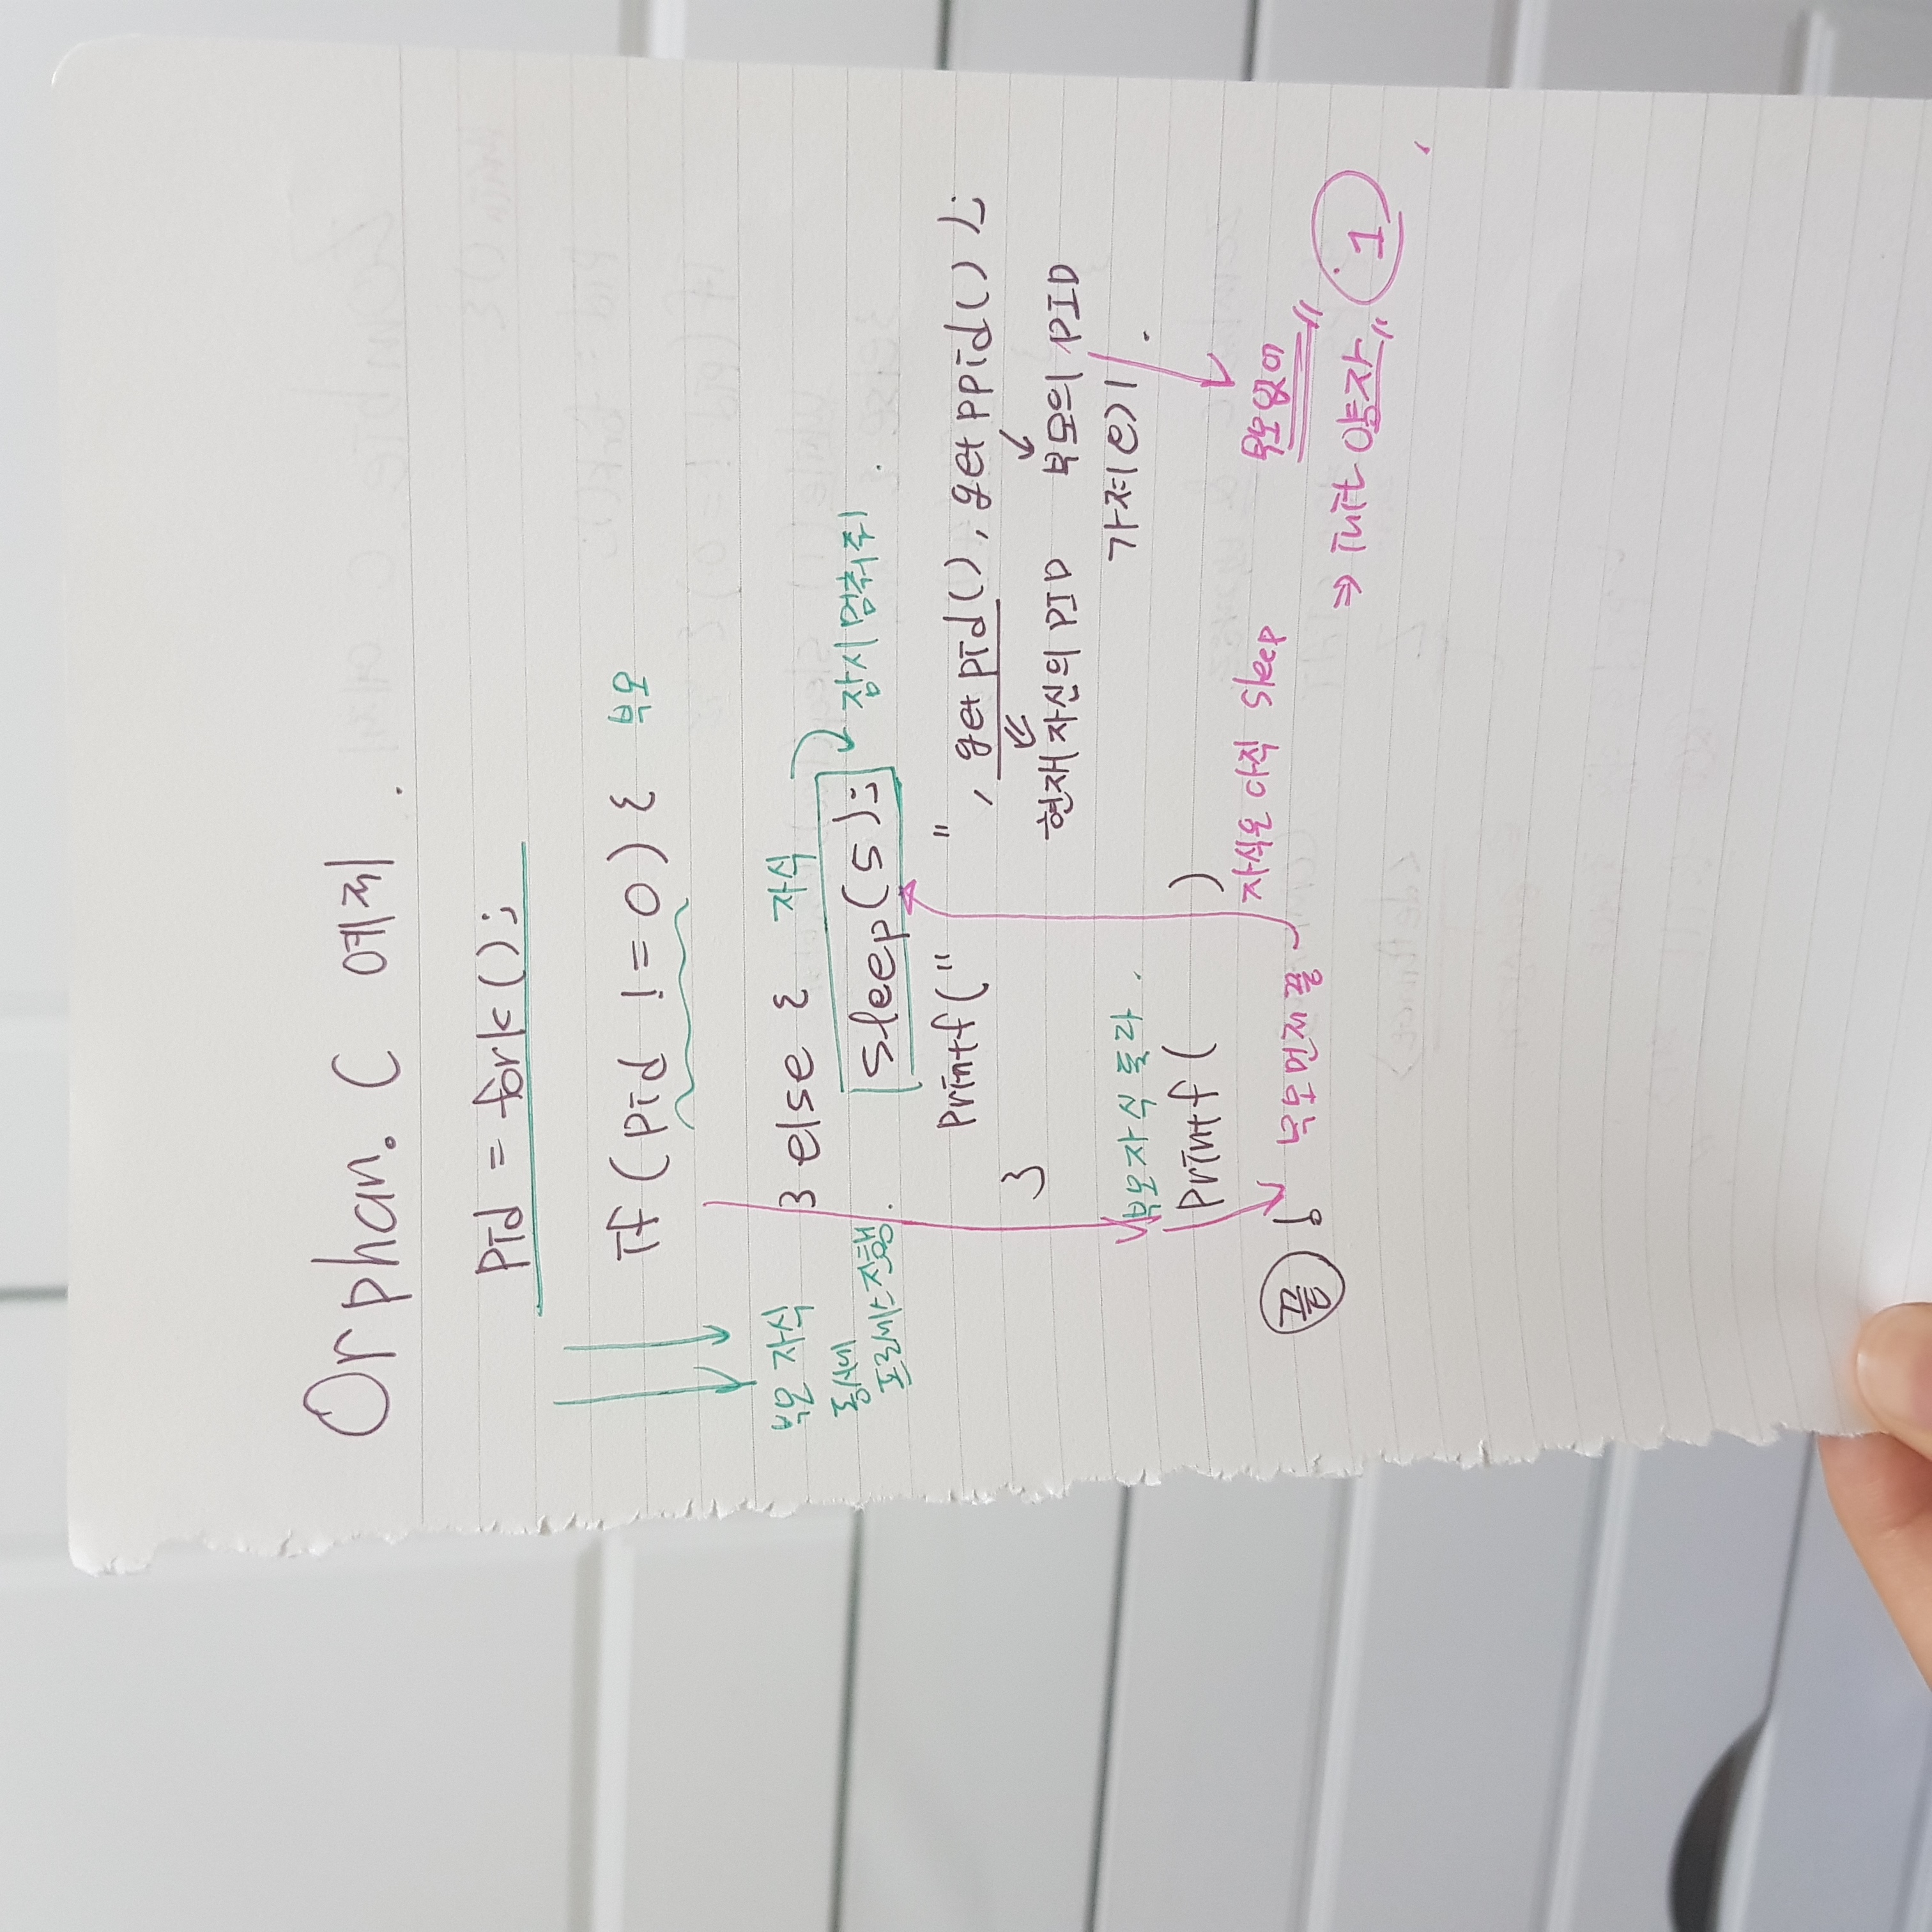 Orphan. C 예제.
pid = fork();
if (pid != 0) { 부모
부모 자식
} else { 자식
동시에
프로세스 진행.
sleep(5);
잠시 멈춰줘.
printf(" ", getpid(), getppid());
}
현재 자신의 PID
부모의 PID
가져오기.
부모자식 둘다.
printf( )
자식은 아직 sleep
부모없어
끝!
부모먼저 끝
⇒ init 양자 1